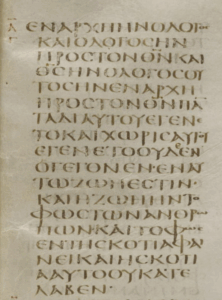 Α ΕΝΑΡΧΗΗΝΟΛΟΓΟϹ
ΚΑΙΟΛΟΓΟϹΗΝ
ΠΡΟϹΤΟΝΘΝ̅ΚΑΙ
ΘϹ̅ΗΝΟΛΟΓΟϹΟΥ
ΤΟϹΗΝΕΝΑΡΧΗ
ΠΡΟϹΤΟΝΘΝ̅ΠΑ
ΤΑΔΙΑΥΤΟΥΕΓΕΝ
ΤΟΚΑΙΧΩΡΙϹΑΥΤ
ΕΓΕΝΕΤΟΟΥΔΕΝ
ΟΓΕΓΟΝΕΝΕΝΑΥ
ΤΩΖΩΗΕϹΤΙΝ
ΚΑΙΗΖΩΗΗΝΤ
ΦΩϹΤΩΝΑΝΘΡ
ΠΩΝΚΑΙΤΟΦΩϹ
ΕΝΤΗϹΚΟΤΙΑΦΑΙ
ΝΕΙΚΑΙΗϹΚΟΤΙ
ΑΑΥΤΟΟΥΚΑΤΕ
ΛΑΒΕΝ